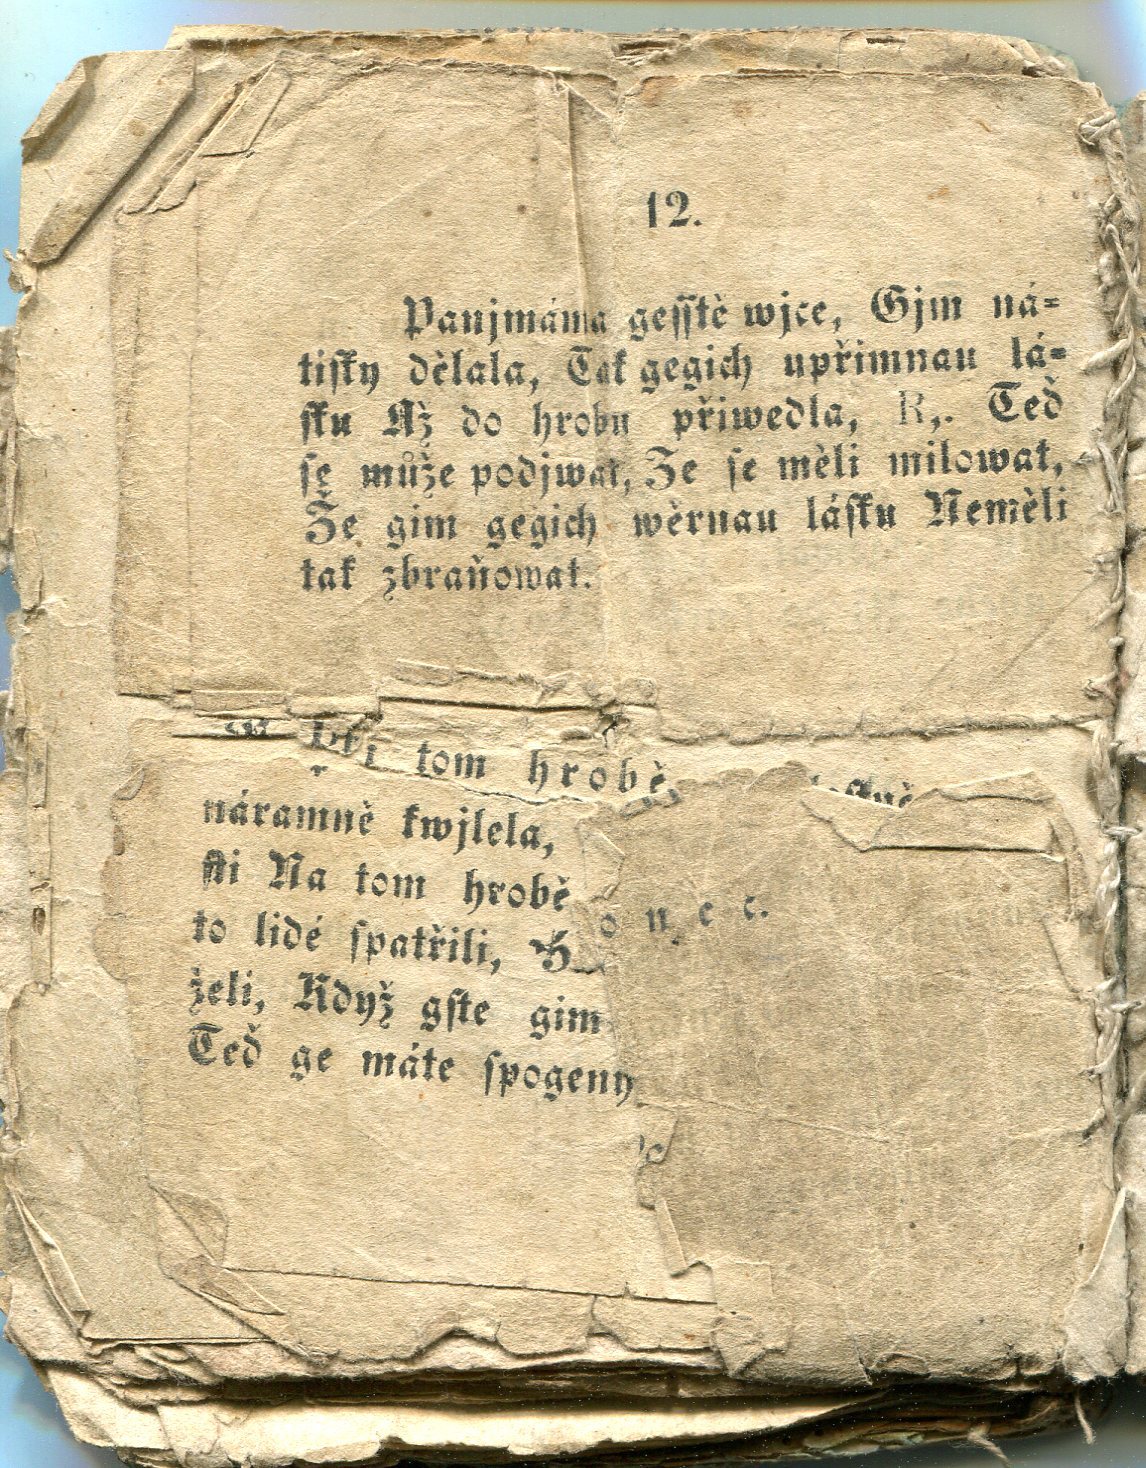 12.
Panjmáma gesstě wjce, Gjm ná=
tisky dělala, Tak gegich upřimnau lá=
sku Až do hrobu přiwedla, R,. Teď
se může podjwat, Ze se měli milowat,
Že gim gegich wěrnau lásku Neměli
tak zbraňowat.
Při tom hrobě
náramně kwjlela,
sti Na tom hrobě
o n e c.
to lidé spatřili,
želi, Když gste gim
Teď ge máte spogeny